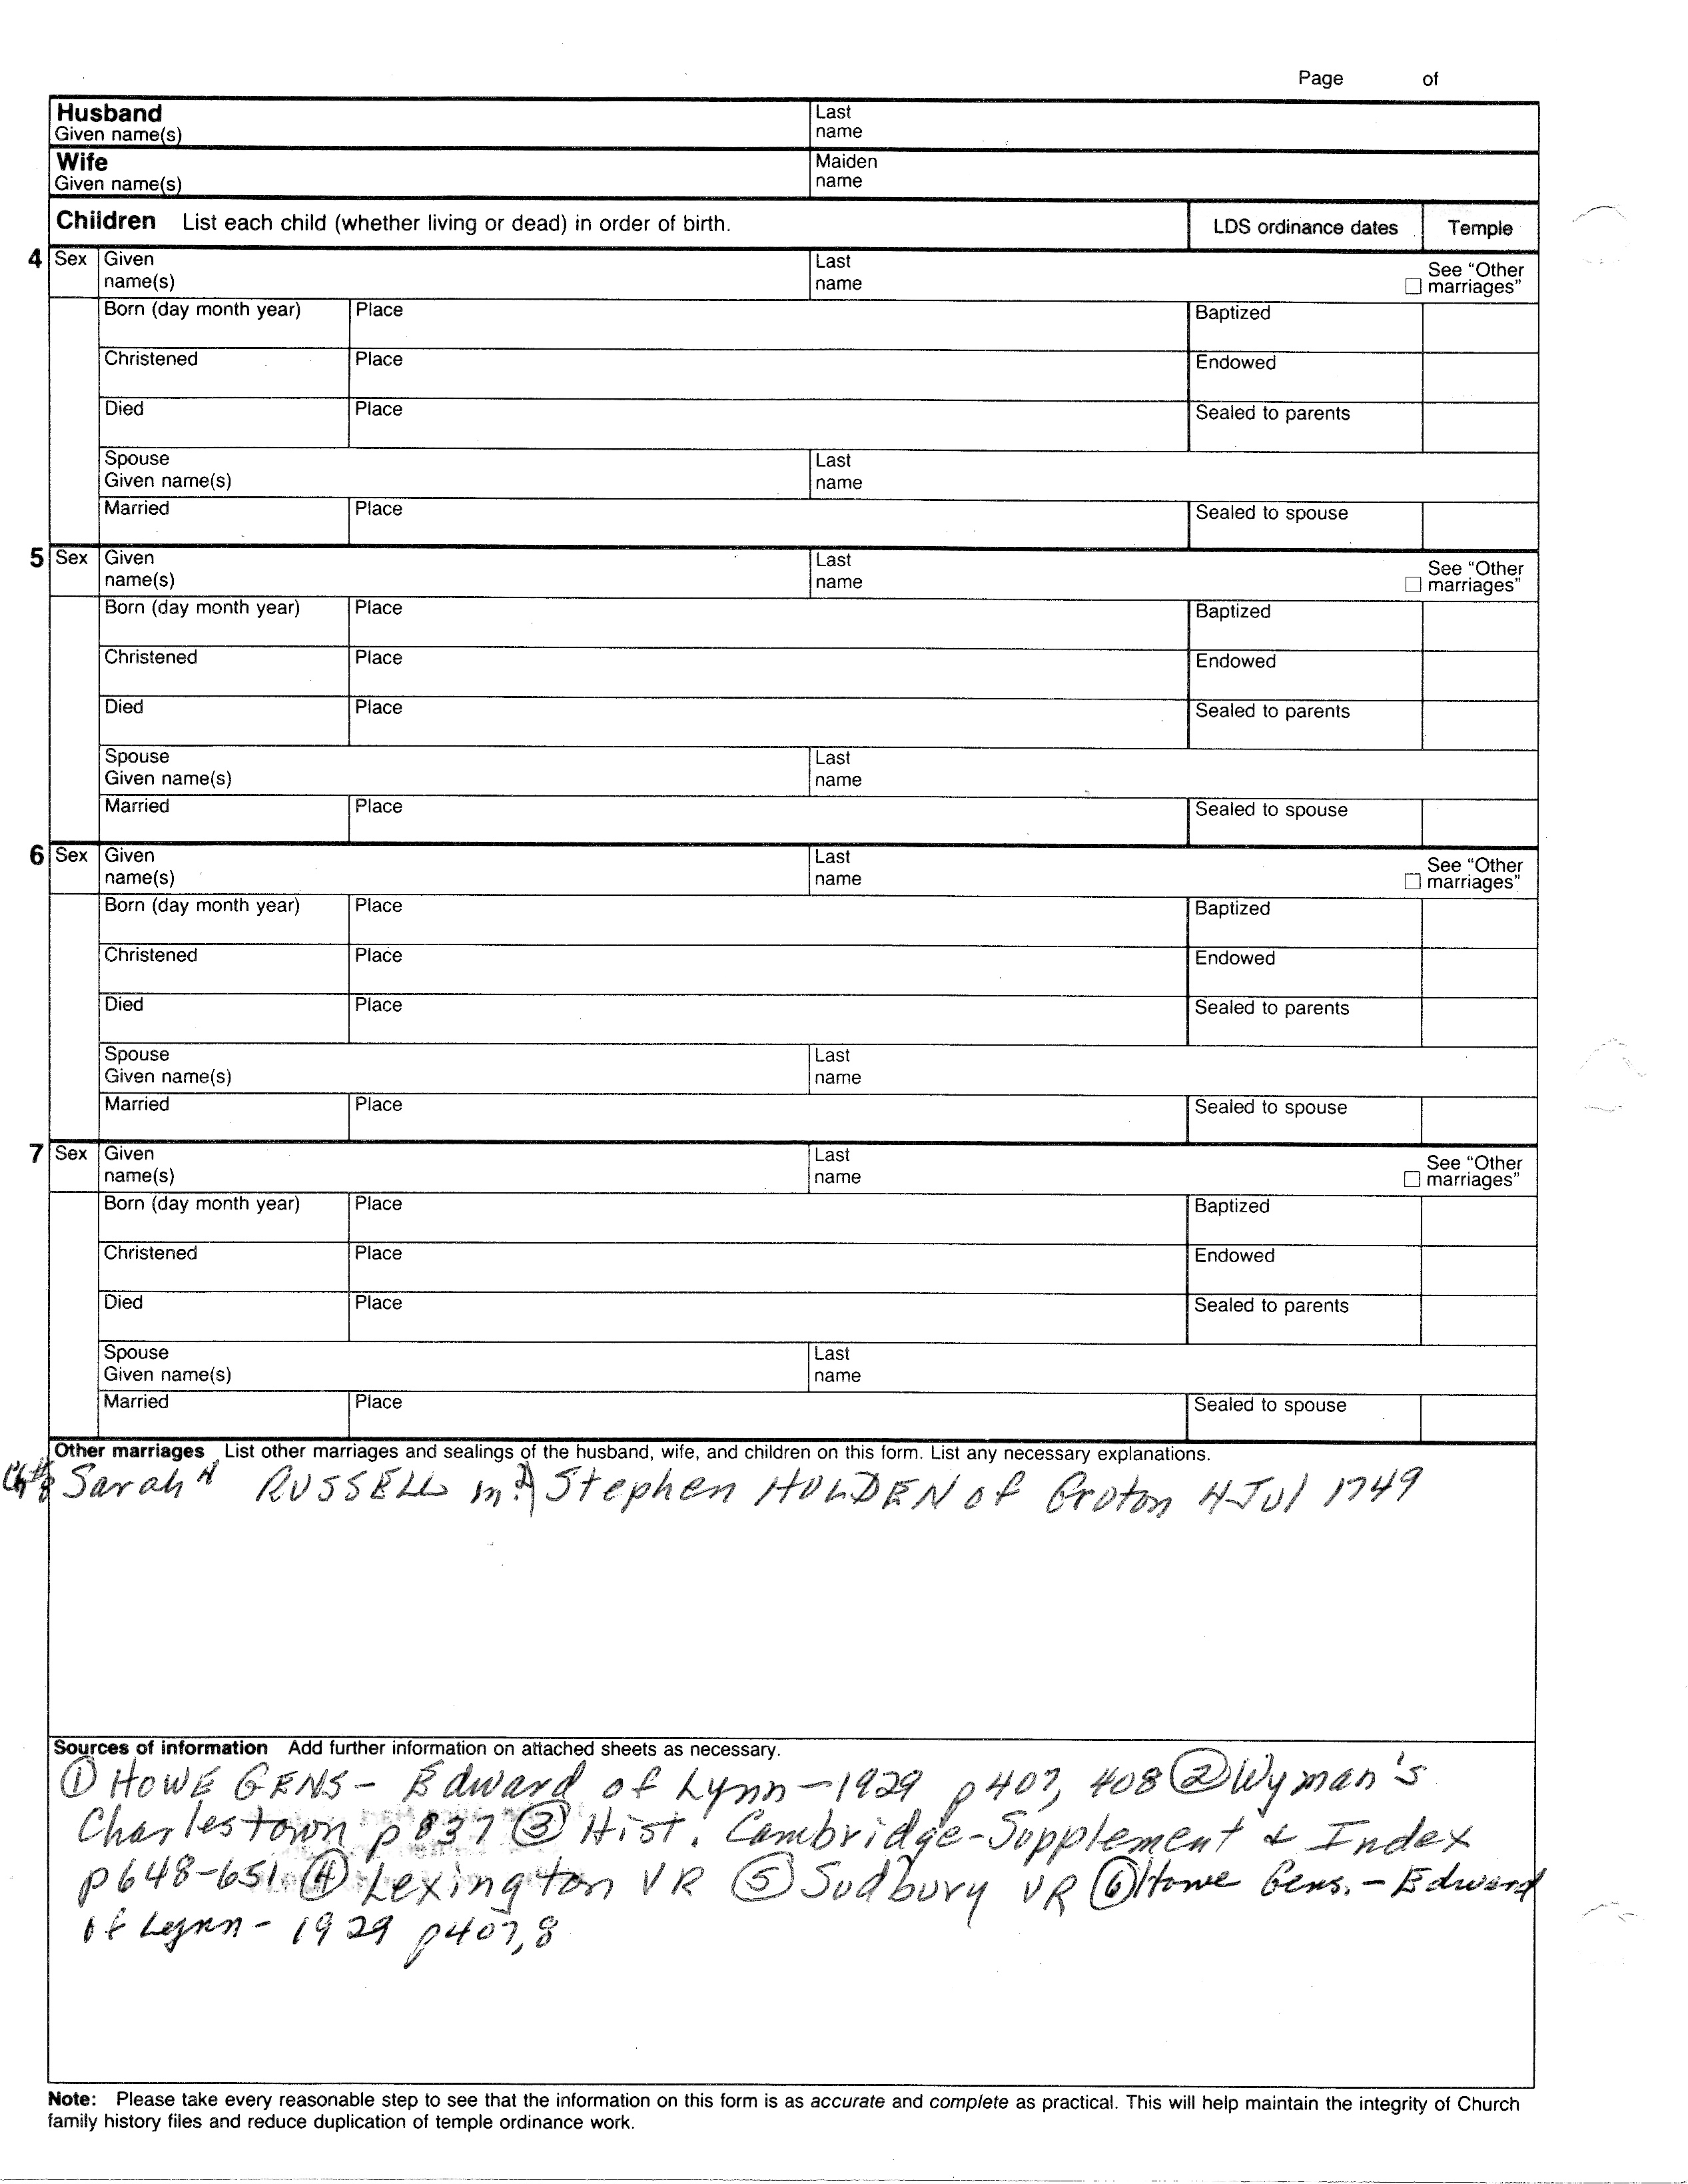 Page of
Husband
Given name(s)
Last
name
Wife
Given name(s)
Maiden
name
Children List each child (whether living or dead) in order of birth.
LDS ordinance dates
Temple
4 Sex Given
name(s)
Last
name
See "Other
marriages"
Born (day month year) Place Baptized
Christened Place Endowed
Died Place Sealed to parents
Spouse
Given name(s)
Last
name
Married Place Sealed to spouse
5 Sex Given
name(s)
Last
name
See "Other
marriages"
Born (day month year) Place Baptized
Christened Place Endowed
Died Place Sealed to parents
Spouse
Given name(s)
Last
name
Married Place Sealed to spouse
6 Sex Given
name(s)
Last
name
See "Other
marriages"
Born (day month year) Place Baptized
Christened Place Endowed
Died Place Sealed to parents
Spouse
Given name(s)
Last
name
Married Place Sealed to spouse
7 Sex Given
name(s)
Last
name
See "Other
marriages"
Born (day month year) Place Baptized
Christened Place Endowed
Died Place Sealed to parents
Spouse
Given name(s)
Last
name
Married Place Sealed to spouse
Other marriages List other marriages and sealings of the husband, wife, and children on this form. List any necessary explanations.
Sarah RUSSELL Stephen HOLDEN of Groton 4 Jul 1749
Sources of information Add further information on attached sheets as necessary.
① HOWE GENS - Edward of Lynn - 1929 p407, 408 ② Wyman's
Charlestown p837 ③ Hist. Cambridge-Supplement & Index
p648-651 ④ Lexington VR ⑤ Sudbury VR ⑥ Howe Gens. - Edward
of Lynn - 1929 p407,8
Note: Please take every reasonable step to see that the information on this form is as accurate and complete as practical. This will help maintain the integrity of Church
family history files and reduce duplication of temple ordinance work.